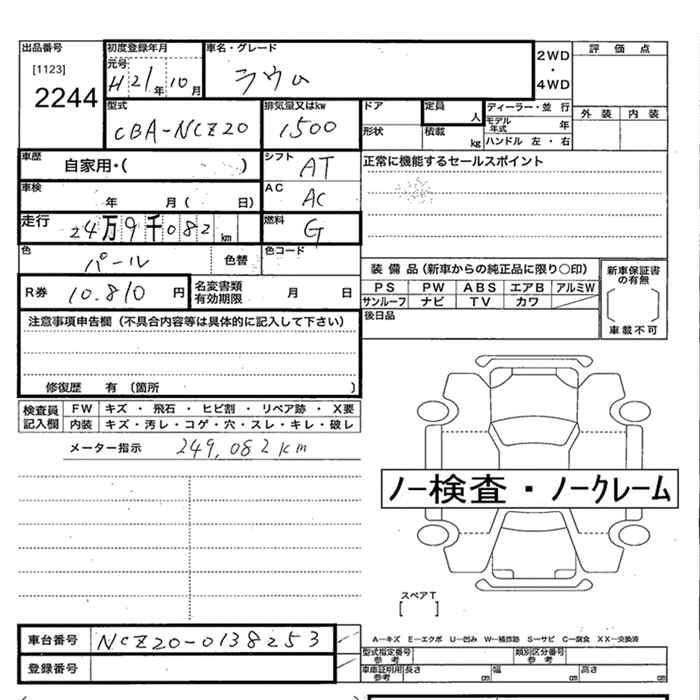 出品番号
[1123]
2244
初度登録年月
元号
H 21 年 10 月
車名・グレード
ラウム
2WD
・
4WD
評 価 点
外 装 内 装
型式
CBA-NCZ20
排気量又はkw
1500
ドア
形状
定員
人
積載
kg
ディーラー・並 行
モデル年式 年
ハンドル 左 ・ 右
車歴
自家用・( )
シフト
AT
正常に機能するセールスポイント
車検
年 月 ( 日)
AC
AC
走行
24万9千082km
燃料
G
色
パール
色替
色コード
装 備 品 (新車からの純正品に限り○印)
PS PW ABS エアB アルミW
サンルーフ ナビ TV カワ
後日品
新車保証書
の有無
車載不可
R券
10.810 円
名変書類
有効期限
月 日
注意事項申告欄 (不具合内容等は具体的に記入して下さい)
修復歴 有 (箇所 )
検査員
記入欄
FW キズ ・ 飛石 ・ ヒビ割 ・ リペア跡 ・ X要
内装 キズ・汚レ・コゲ・穴・スレ・キレ・破レ
メーター指示 249,082km
ノー検査・ノークレーム
スペアT
[ ]
車台番号
NCZ20-0138253
登録番号
A―キズ E―エクボ U―凹み W―補修跡 S―サビ C―腐食 XX―交換済
型式指定番号
参 考
類別区分番号
参 考
車庫証明用
参考
長さ cm 幅 cm 高さ cm